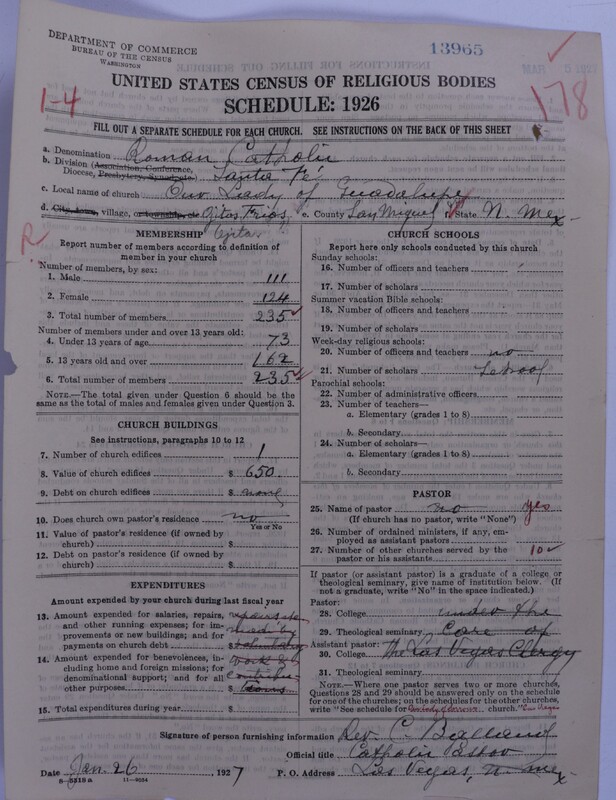 DEPARTMENT OF COMMERCE
BUREAU OF THE CENSUS
WASHINGTON
13965
UNITED STATES CENSUS OF RELIGIOUS BODIES
SCHEDULE: 1926
1-4
178
FILL OUT A SEPARATE SCHEDULE FOR EACH CHURCH. SEE INSTRUCTIONS ON THE BACK OF THIS SHEET
a. Denomination Roman Catholic
b. Division (Association, Conference, Diocese, Presbytery, Synod, etc.) Santa Fé
c. Local name of church Our Lady of Guadalupe
d. City, town, village, or township, etc. Ojitos Frios, e. County San Miguel f. State N. Mex
R
MEMBERSHIP
Report number of members according to definition of
member in your church
Number of members, by sex:
1. Male 111
2. Female 124
3. Total number of members 235
Number of members under and over 13 years old:
4. Under 13 years of age 73
5. 13 years old and over 162
6. Total number of members 235
NOTE.—The total given under Question 6 should be the
same as the total of males and females given under Question 3.
CHURCH BUILDINGS
See instructions, paragraphs 10 to 12
7. Number of church edifices 1
8. Value of church edifices $ 650.
9. Debt on church edifices $ none
10. Does church own pastor's residence no
Yes or No
11. Value of pastor's residence (if owned by
church) $
12. Debt on pastor's residence (if owned by
church) $
EXPENDITURES
Amount expended by your church during last fiscal year
13. Amount expended for salaries, repairs,
and other running expenses; for im-
provements or new buildings; and for
payments on church debt $
repairs
made by
14. Amount expended for benevolences, in-
cluding home and foreign missions; for
denominational support; and for all
other purposes $
work &
15. Total expenditures during year $
CHURCH SCHOOLS
Report here only schools conducted by this church
Sunday schools:
16. Number of officers and teachers
17. Number of scholars
Summer vacation Bible schools:
18. Number of officers and teachers
19. Number of scholars
Week-day religious schools:
20. Number of officers and teachers no
21. Number of scholars School
Parochial schools:
22. Number of administrative officers
23. Number of teachers—
a. Elementary (grades 1 to 8)
b. Secondary
24. Number of scholars—
a. Elementary (grades 1 to 8)
b. Secondary
PASTOR
25. Name of pastor no yes
(If church has no pastor, write "None")
26. Number of ordained ministers, if any, em-
ployed as assistant pastors
27. Number of other churches served by the
pastor or his assistants 10
If pastor (or assistant pastor) is a graduate of a college or
theological seminary, give name of institution below. (If
not a graduate, write "No" in the space indicated.)
Pastor:
28. College under the
29. Theological seminary Care of
Assistant pastor:
30. College The Las Vegas Clergy
31. Theological seminary
NOTE.—Where one pastor serves two or more churches,
Questions 28 and 29 should be answered only on the schedule
for one of the churches; on the schedules for the other churches,
write "See schedule for church."
Signature of person furnishing information Rev. C. Balland
Official title Catholic Pastor
Date Jan. 26 1927 P. O. Address Las Vegas, N. Mex
8-5518 a 11-9034